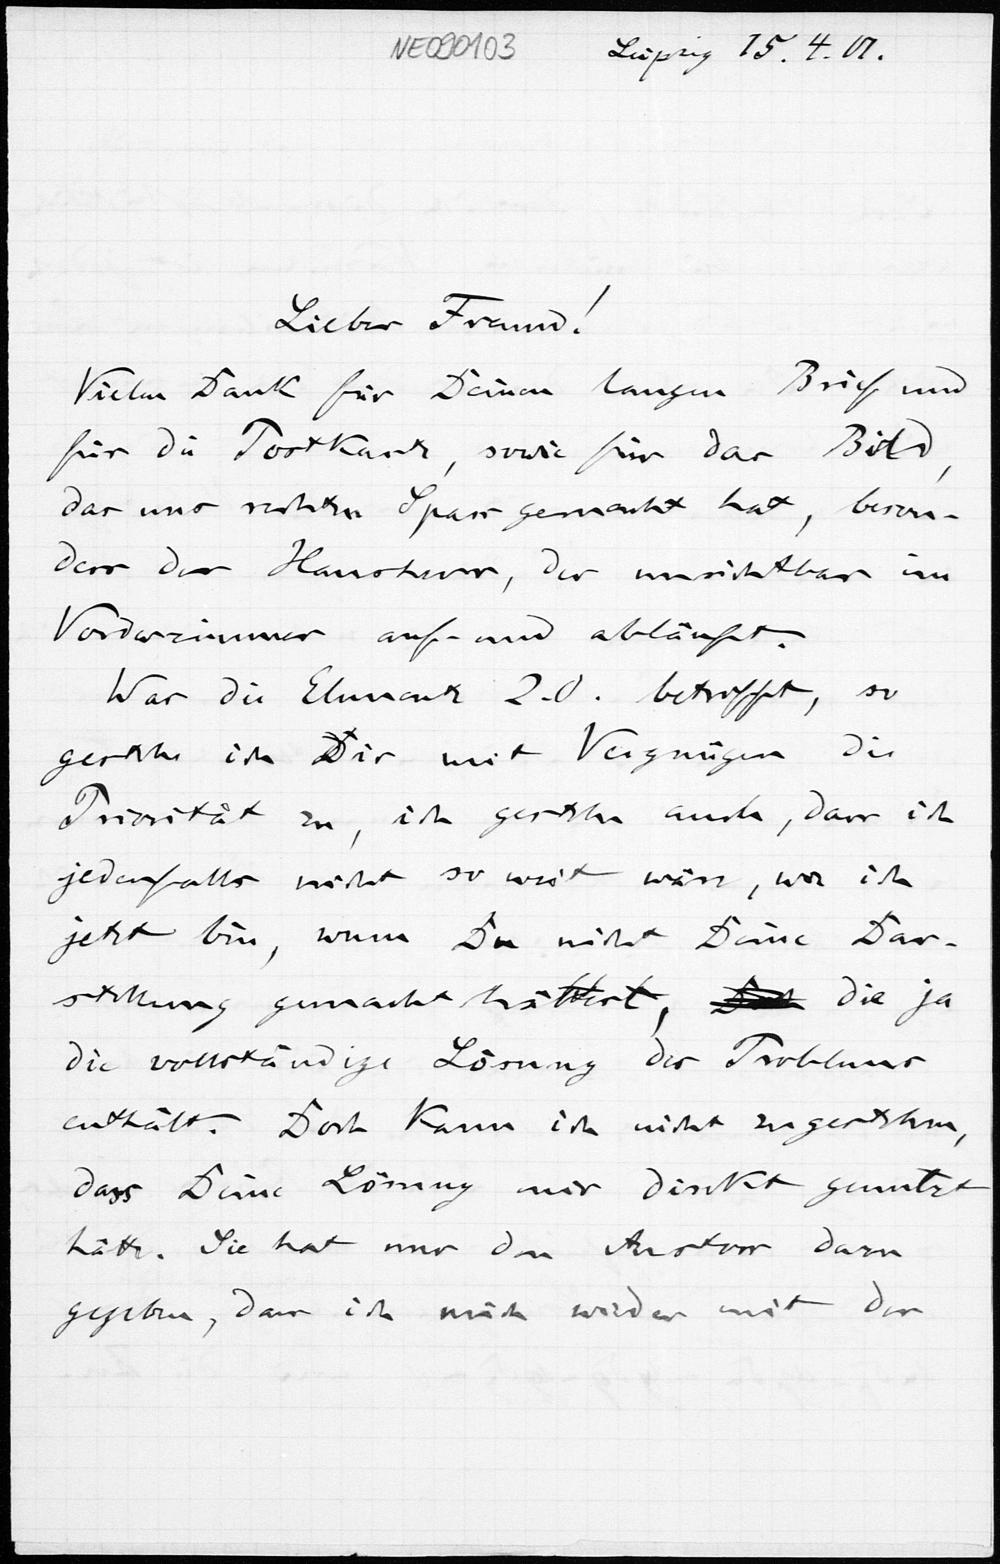 NE090103
Leipzig 15. 4. 01.
Lieber Freund!
Vielen Dank für Deinen langen Brief und
für die Postkarte, sowie für das Bild,
das uns rechten Spass gemacht hat, beson-
ders der Hausherr, der unsichtbar im
Vorderzimmer auf- und abläuft.
Was die Elemente 2.O. betrifft, so
gestehe ich Dir mit Vergnügen die
Priorität zu, ich gestehe auch, dass ich
jedenfalls nicht so weit wäre, wo ich
jetzt bin, wenn Du nicht Deine Dar-
stellung gemacht hättest, die ja
die vollständige Lösung des Problems
enthält. Doch kann ich nicht zugestehen,
dass Deine Lösung mir direkt genützt
hätte. Sie hat nur den Anstoss dazu
gegeben, dass ich mich wieder mit der